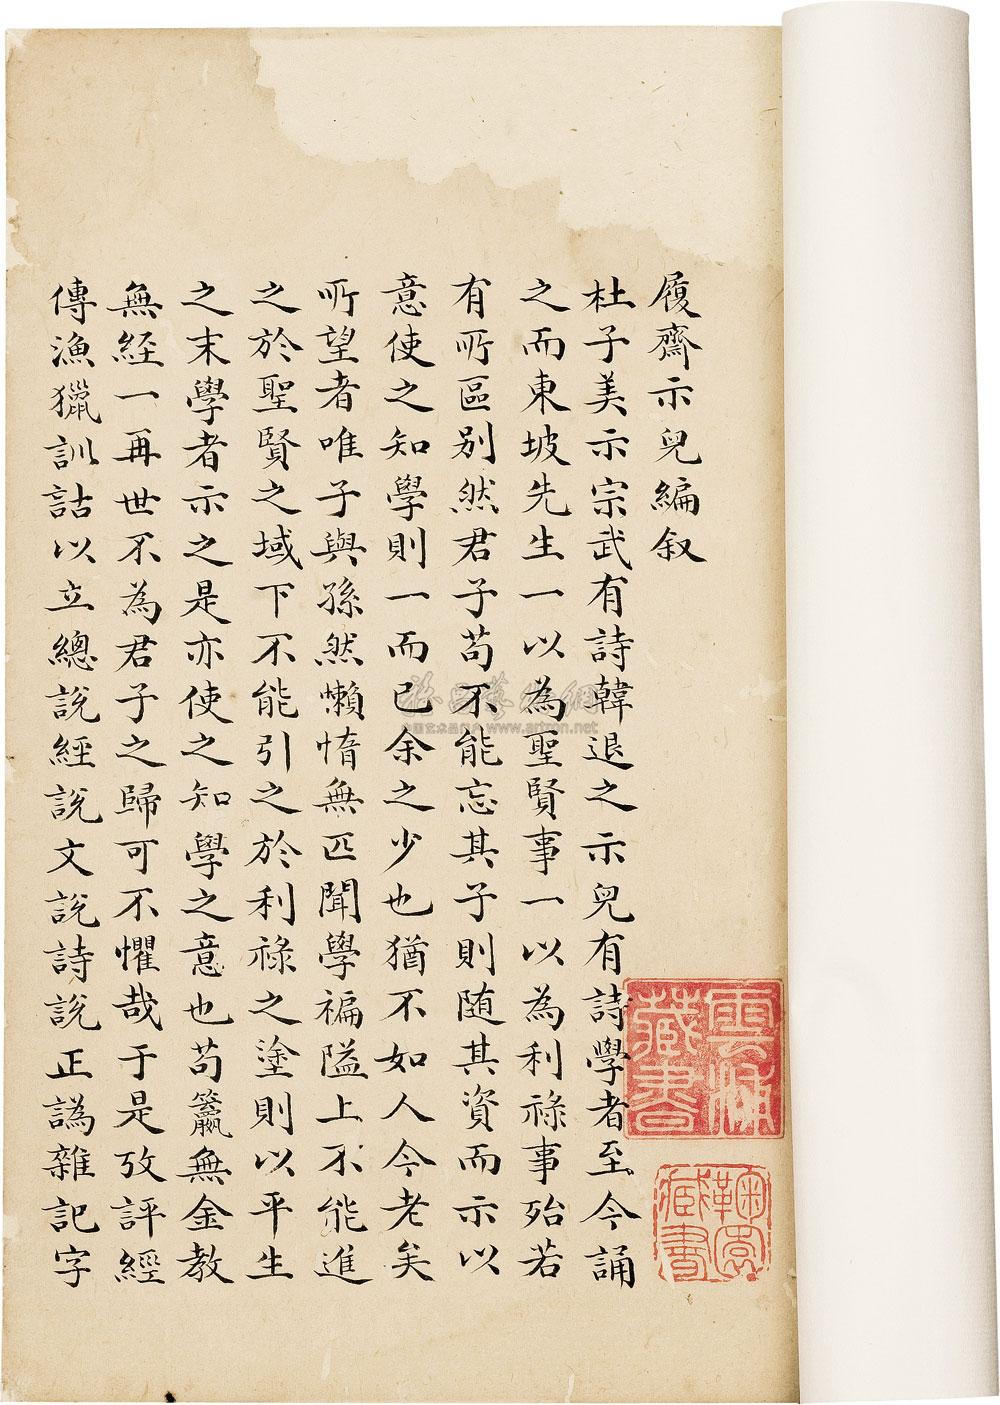 履齋示兒編叙
杜子美示宗武有詩韓退之示兒有詩學者至今誦
之而東坡先生一以為聖賢事一以為利祿事殆若
有所區别然君子苟不能忘其子則随其資而示以
意使之知學則一而已余之少也猶不如人今老矣
所望者唯子與孫然懶惰無匹聞學褊隘上不能進
之於聖賢之域下不能引之於利祿之塗則以平生
之末學者示之是亦使之知學之意也苟籯無金教
無経一再世不為君子之歸可不懼哉于是攷評經
傳漁獵訓詁以立總說經說文說詩說正譌雜記字
藏書
藏書
www.artron.net